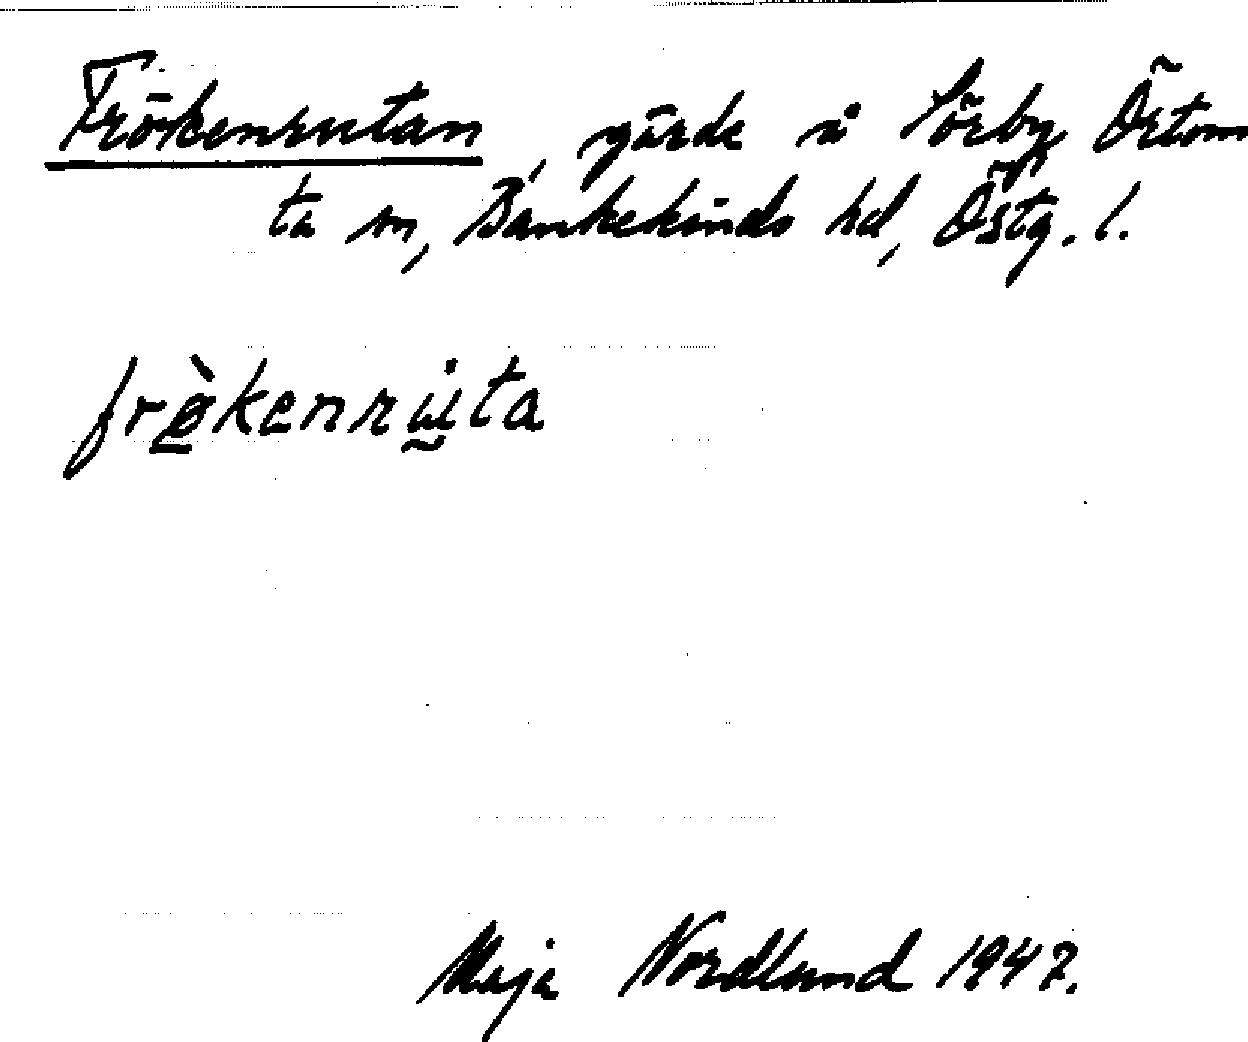 Frökenrutan, gärde i Sörby Örtom
ta sn, Bankekinds hd, Östg. l.
frø̀kenruta
Maja Nordlund 1947.